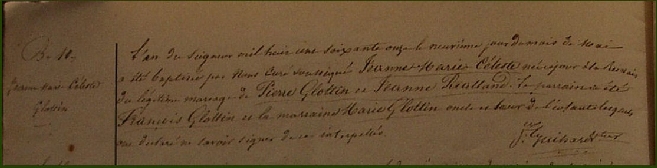 B. 10.
Jeanne Marie Céleste
Glottin
L'an du Seigneur mil huit cent soixante onze le neuvième jour du mois de Mai
a été baptisée par Nous Curé soussigné Jeanne Marie Céleste née ce jour à la
du légitime mariage de Pierre Glottin et Jeanne le parrain a été
François Glottin et la marraine Marie Glottin oncle et tante de l'enfant lesquels
ont déclaré ne savoir signer de ce interpellés.
J. Guihard